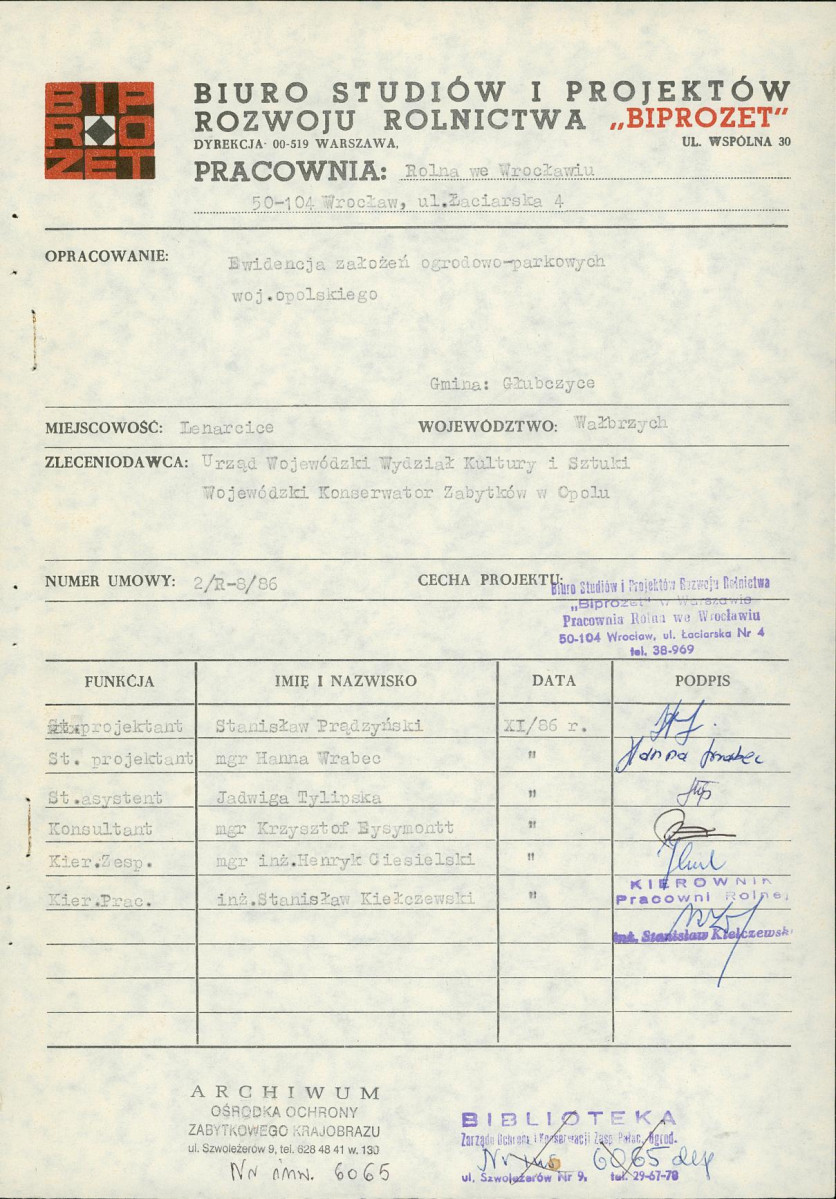 BIP
RO
ZET
BIURO STUDIÓW I PROJEKTÓW
ROZWOJU ROLNICTWA „BIPROZET"
DYREKCJA· 00-519 WARSZAWA, UL. WSPÓLNA 30
PRACOWNIA: Rolna we Wrocławiu
50-104 Wrocław, ul.Łaciarska 4
OPRACOWANIE: Ewidencja założeń ogrodowo-parkowych
woj.opolskiego
Gmina: Głubczyce
MIEJSCOWOŚĆ: Lenarcice WOJEWÓDZTWO: Wałbrzych
ZLECENIODAWCA: Urząd Wojewódzki Wydział Kultury i Sztuki
Wojewódzki Konserwator Zabytków w Opolu
NUMER UMOWY: 2/R-8/86 CECHA PROJEKTU:
Biuro Studiów i Projektów Rozwoju Rolnictwa
„Biprozet" w Warszawie
Pracownia Rolna we Wrocławiu
50-104 Wrocław, ul. Łaciarska Nr 4
tel. 38-969
FUNKCJA IMIĘ I NAZWISKO DATA PODPIS
St.projektant Stanisław Prądzyński XI/86 r.
St. projektant mgr Hanna Wrabec " Hanna Wrabec
St.asystent Jadwiga Tylipska "
Konsultant mgr Krzysztof Eysymontt "
Kier.Zesp. mgr inż.Henryk Ciesielski "
Kier.Prac. inż.Stanisław Kiełczewski "
KIEROWNIK
Pracowni Rolnej
inż. Stanisław Kiełczewski
ARCHIWUM
OŚRODKA OCHRONY
ZABYTKOWEGO KRAJOBRAZU
ul. Szwoleżerów 9, tel. 628 48 41 w. 130
Nr inw. 6065
BIBLIOTEKA
Zarządu Ochrony i Konserwacji Zesp. Pałac. Ogrod.
Nr inw. 6065
ul. Szwoleżerów Nr 9. tel. 29-67-78